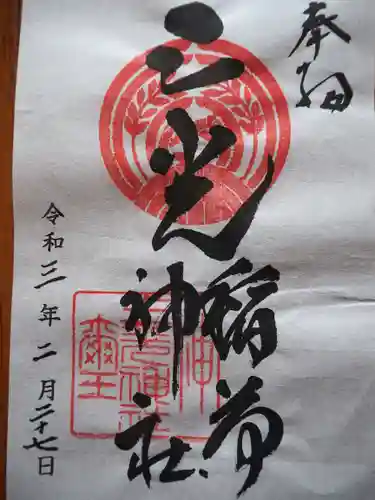 奉拝
三光稲荷
神社
令和三年二月二十七日